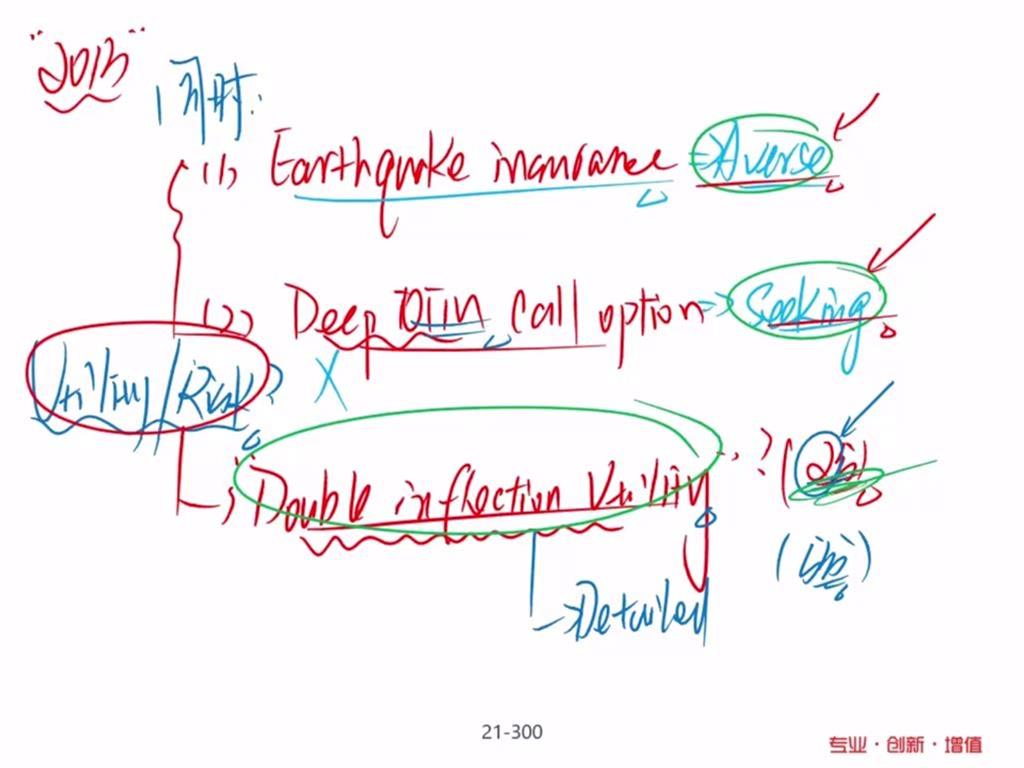 "2013"
同时:
(1) Earthquake insurance ⇒ Averse
(2) Deep OTM Call option ⇒ Seeking
Utility/Risk? X
Double inflection Utility ..?
→ Detailed
21-300
专业·创新·增值